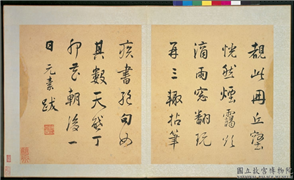 觀此冊丘壑
恍然煙霧欲
滴雨窓翻玩
再三輒拈筆
疾書絕句如
其數天啟丁
卯花朝後一
日元素跋
國立故宮博物院